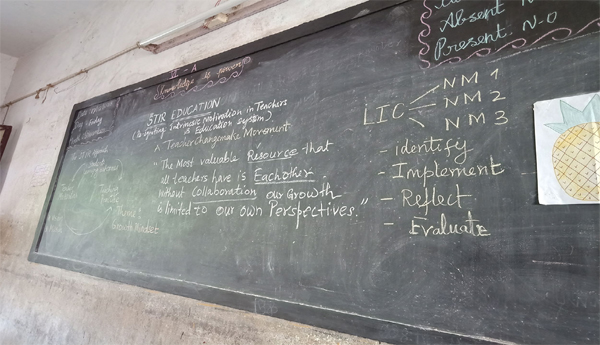 VI - A
Knowledge is power
Absent N
Present. N.O
STIR EDUCATION
(Igniting Intrinsic Motivation in Teachers
& Education system)
A Teacher Changemake Movement
The Most valuable Resource that
all teachers have is Each other.
Without Collaboration our Growth
is limited to our own Perspectives."
Theme:
Growth Mindset
LIC
NM 1
NM 2
NM 3
- identify
- Implement
- Reflect
- Evaluate